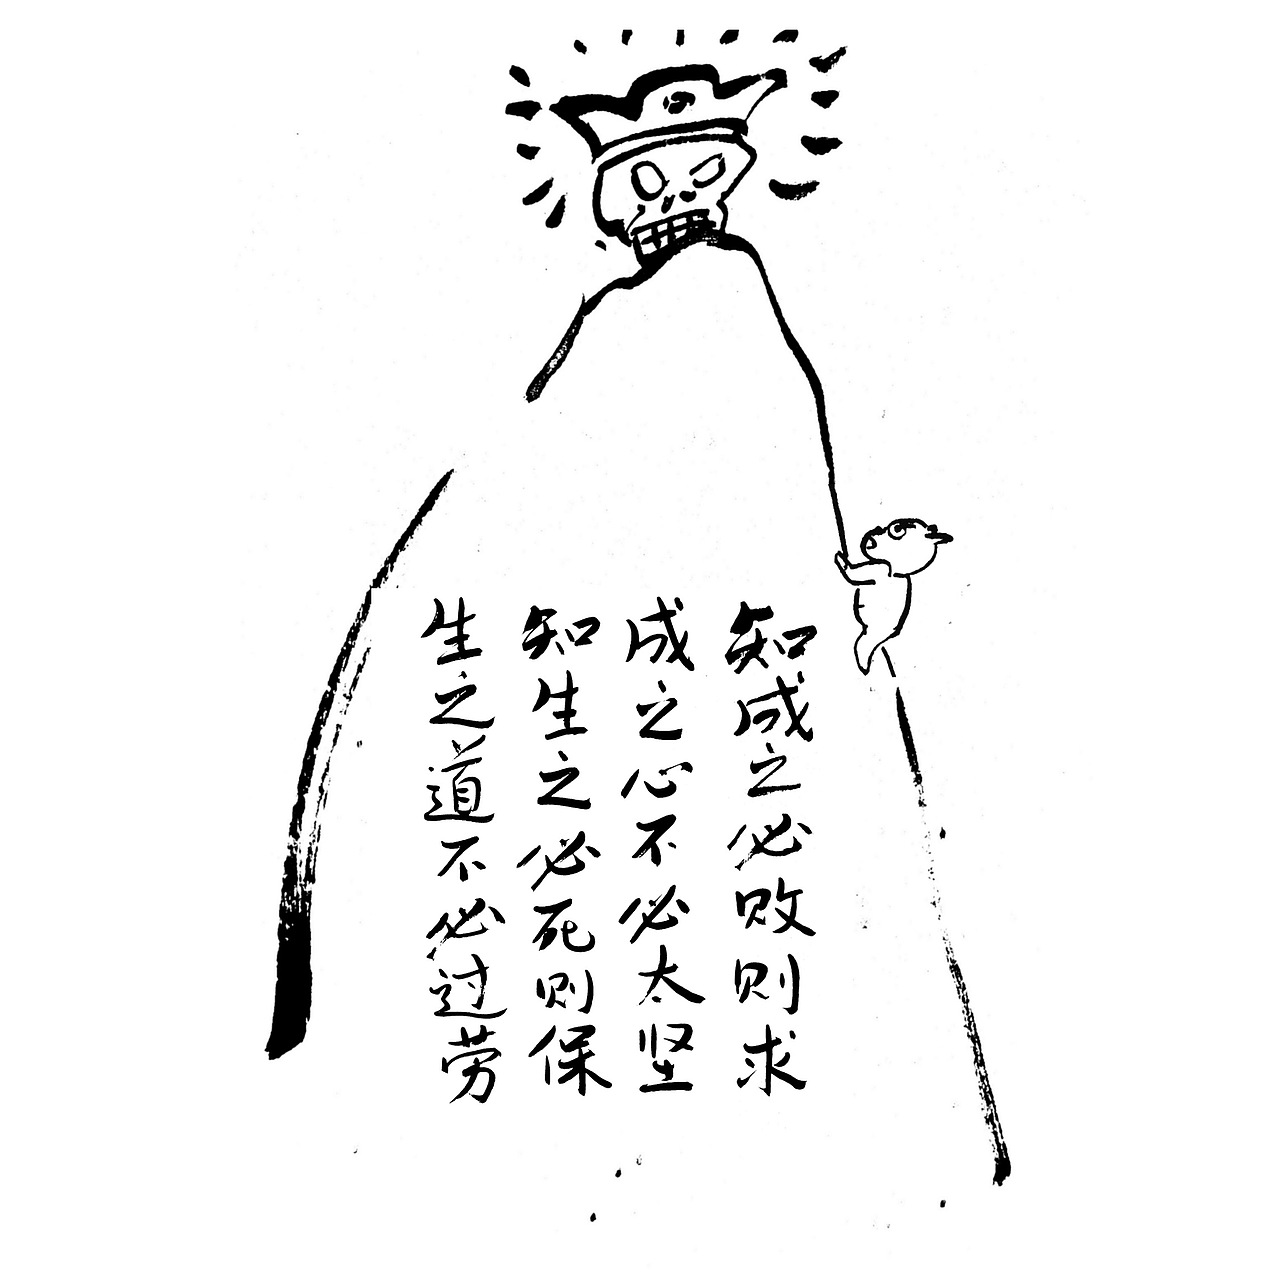 知成之必败则求
成之心不必太坚
知生之必死则保
生之道不必过劳